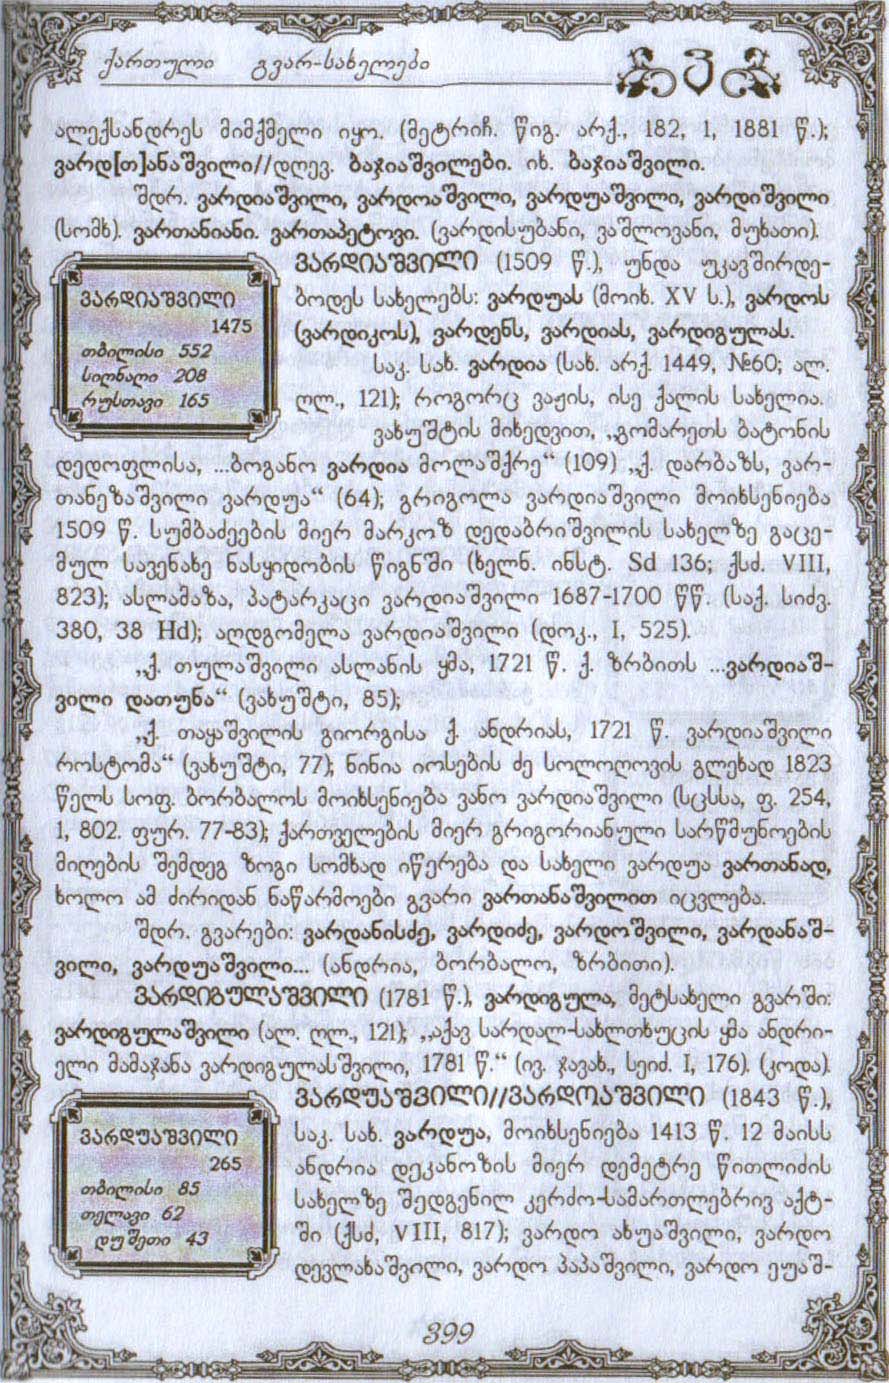 ქართული გვარ-სახელები
ვ
ალექსანდრეს მიმქმელი იყო. (მეტრიჩ. წიგ. არქ., 182, 1, 1881 წ.);
ვარდ[თ]ანაშვილი//დღევ. ბაჯიაშვილები. იხ. ბაჯიაშვილი.
შდრ. ვარდიაშვილი, ვარდოაშვილი, ვარდუაშვილი, ვარდიშვილი
(სომხ). ვართანიანი. ვართაპეტოვი. (ვარდისუბანი, ვაშლოვანი, მუხათი).
ვარდიაშვილი
1475
თბილისი 552
სიღნაღი 208
რუსთავი 165
ვარდიაშვილი (1509 წ.), უნდა უკავშირდე-
ბოდეს სახელებს: ვარდუას (მოიხ. XV ს.), ვარდოს
(ვარდიკოს), ვარდენს, ვარდიას, ვარდიგულას.
საკ. სახ. ვარდია (სახ. არქ. 1449, №60; ალ.
ღლ., 121); როგორც ვაჟის, ისე ქალის სახელია.
ვახუშტის მიხედვით, „გომარეთს ბატონის
დედოფლისა, ...ბოგანო ვარდია მოლაშქრე“ (109) „ქ. დარბაზს, ვარ-
თანეზაშვილი ვარდუა“ (64); გრიგოლა ვარდიაშვილი მოიხსენიება
1509 წ. სუმბაძეების მიერ მარკოზ დედაბრიშვილის სახელზე გაცე-
მულ სავენახე ნასყიდობის წიგნში (ხელნ. ინსტ. Sd 136; ქსძ. VIII,
823); ასლამაზა, პატარკაცი ვარდიაშვილი 1687-1700 წწ. (საქ. სიძვ.
380, 38 Hd); აღდგომელა ვარდიაშვილი (დოკ., I, 525).
„ქ. თულაშვილი ასლანის ყმა, 1721 წ. ქ. ზრბითს ...ვარდიაშ-
ვილი დათუნა“ (ვახუშტი, 85);
„ქ. თაყაშვილის გიორგისა ქ. ანდრიას, 1721 წ. ვარდიაშვილი
როსტომა“ (ვახუშტი, 77); ნინია იოსების ძე სოლოღოვის გლეხად 1823
წელს სოფ. ბორბალოს მოიხსენიება ვანო ვარდიაშვილი (სცსსა, ფ. 254,
1, 802. ფურ. 77-83); ქართველების მიერ გრიგორიანული სარწმუნოების
მიღების შემდეგ ზოგი სომხად იწერება და სახელი ვარდუა ვართანად,
ხოლო ამ ძირიდან ნაწარმოები გვარი ვართანაშვილით იცვლება.
შდრ. გვარები: ვარდანისძე, ვარდიძე, ვარდოშვილი, ვარდანაშ-
ვილი, ვარდუაშვილი... (ანდრია, ბორბალო, ზრბითი).
ვარდიგულაშვილი (1781 წ.), ვარდიგულა, მეტსახელი გვარში:
ვარდიგულაშვილი (ალ. ღლ., 121); „აქავ სარდალ-სახლთხუცის ყმა ანდრი-
ელი მამაჯანა ვარდიგულასშვილი, 1781 წ.“ (ივ. ჯავახ., სეიძ. I, 176). (კოდა).
ვარდუაშვილი//ვარდოაშვილი (1843 წ.),
ვარდუაშვილი
265
თბილისი 85
თელავი 62
დუშეთი 43
საკ. სახ. ვარდუა, მოიხსენიება 1413 წ. 12 მაისს
ანდრია დეკანოზის მიერ დემეტრე წითლიძის
სახელზე შედგენილ კერძო-სამართლებრივ აქტ-
ში (ქსძ, VIII, 817); ვარდო ახუაშვილი, ვარდო
დევლახაშვილი, ვარდო პაპაშვილი, ვარდო ეუაშ-
399